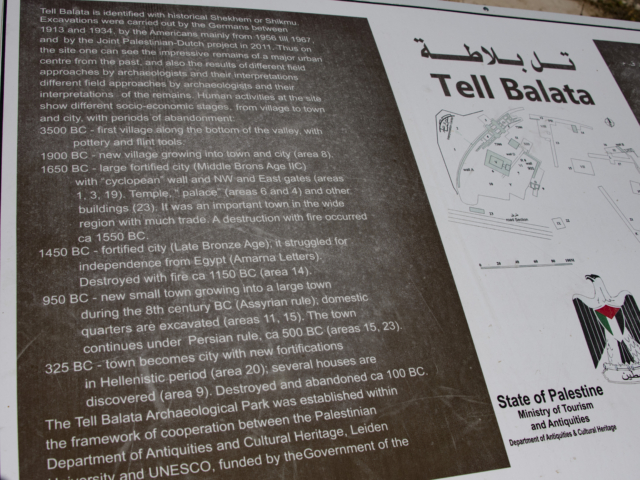 Tell Balata is identified with historical Shekhem or Shikmu.
Excavations were carried out by the Germans between
1913 and 1934, by the Americans mainly from 1956 till 1967,
and by the Joint Palestinian-Dutch project in 2011. Thus on
the site one can see the impressive remains of a major urban
centre from the past, and also the results of different field
approaches by archaeologists and their interpretations
different field approaches by archaeologists and their
interpretations of the remains. Human activities at the site
show different socio-economic stages, from village to town
and city, with periods of abandonment:
3500 BC - first village along the bottom of the valley, with
pottery and flint tools.
1900 BC - new village growing into town and city (area 8).
1650 BC - large fortified city (Middle Brons Age IIC)
with "cyclopean" wall and NW and East gates (areas
1, 3, 19). Temple, " palace" (areas 6 and 4) and other
buildings (23). It was an important town in the wide
region with much trade. A destruction with fire occurred
ca 1550 BC.
1450 BC - fortified city (Late Bronze Age); it struggled for
independence from Egypt (Amarna Letters).
Destroyed with fire ca 1150 BC (area 14).
950 BC - new small town growing into a large town
during the 8th century BC (Assyrian rule); domestic
quarters are excavated (areas 11, 15). The town
continues under Persian rule, ca 500 BC (areas 15, 23).
325 BC - town becomes city with new fortifications
in Hellenistic period (area 20); several houses are
discovered (area 9). Destroyed and abandoned ca 100 BC.
The Tell Balata Archaeological Park was established within
the framework of cooperation between the Palestinian
Department of Antiquities and Cultural Heritage, Leiden
University and UNESCO, funded by theGovernment of the
تل بلاطة
Tell Balata
فلسطين
State of Palestine
Ministry of Tourism
and Antiquities
Department of Antiquities & Cultural Heritage